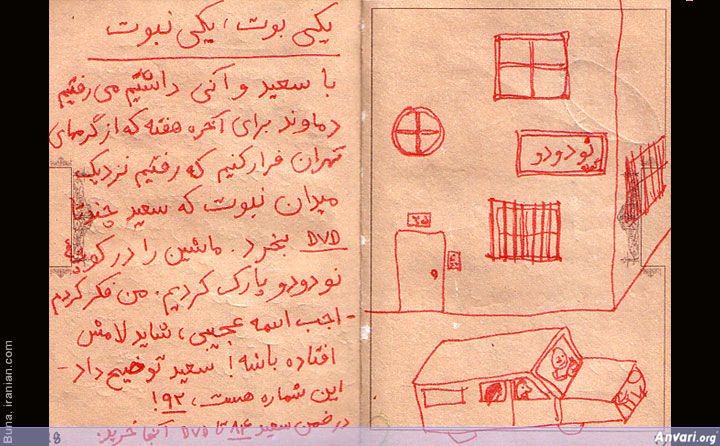 یکی بوت ، یکی نبوت
با سعید و آنی داشتیم می رفتیم
دماوند برای آخره هفته که از گرمای
تهران فرار کنیم که رفتیم نزدیک
میدان نبوت که سعید چند تا
DVD بخرد. ماشین را در کوچه
نودودو پارک کردیم. من فکر کردم
-اجب اسمه عجیبی، شاید لامش
افتاده باشه! سعید توضیح داد-
این شماره هست، ۹۲!
در ضمن سعید ۸۴ تا DVD آنجا خرید.
نودودو
کوچه
Buna. iranian.com
Anvari.org